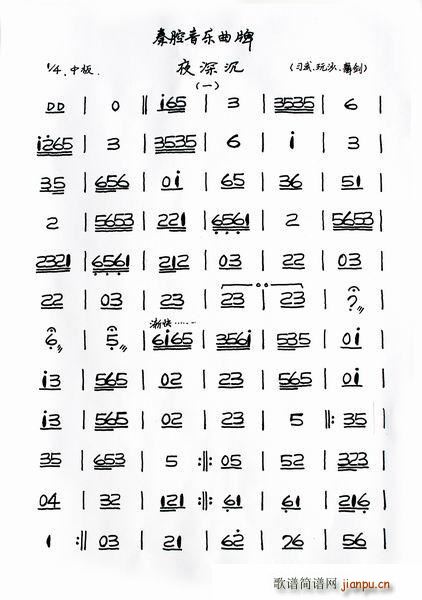 秦腔音乐曲牌
夜深沉
1/4.中板.
(习武.玩沙.舞剑)
(一)
DD | 0 ‖ i65 | 3 | 3535 | 6
i265 | 3 | 3535 | 6 | i | 3
35 | 656 | 0i | 65 | 36 | 51
2 | 5653 | 221 | 6561 | 2 | 5653
2321 | 6561 | 212 | 03 | 22 | 03
22 | 03 | 23 | 23 | 23 | ?
渐快……
6 | 5 | 6i65 | 356i | 535 | 0i
i3 | 565 | 02 | 23 | 565 | 0i
i3 | 565 | 02 | 23 | 5 ‖: 35
35 | 653 | 5 :‖: 05 | 52 | 323
04 | 32 | 121 :‖: 61 | 61 | 216
1 :‖ 03 | 21 | 62 | 26 | 56
歌谱简谱网
jianpu.cn